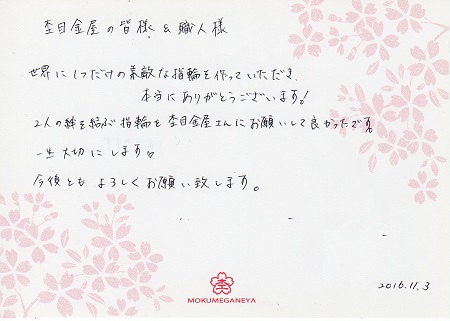 杢目金屋の皆様 & 職人様
世界に1つだけの素敵な指輪を作っていただき、
本当にありがとうございます!
2人の絆を結ぶ指輪を杢目金屋さんにお願いして良かったです。
一生大切にします♡
今後ともよろしくお願い致します。
杢
MOKUMEGANEYA
2016.11.3